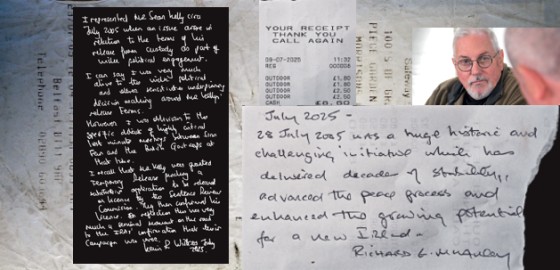 I represented Mr Sean Kelly circa
July 2005 when an issue arose in
relation to the terms of his
release from custody as part of
wider political engagement.
I can say I was very much
alive to the wider political
and sensitive underpinning
decision making around Mr Kelly's
release terms.
However I was oblivious to the
specific details of highly critical
last minute meetings between Sinn
Fein and the British Gov reps at
that time.
I recall that Mr Kelly was granted
Temporary Release pending a
substantive application to be released
on licence to the Sentence Review
Commission. They then confirmed his
licence. On reflection this was very
much a seminal moment on the road
to the IRA's confirmation that their
Campaign was over.
Kevin R Winters July
2025.
YOUR RECEIPT
THANK YOU
CALL AGAIN
11:32
REG
OUTDOOR £1.80
OUTDOOR £1.80
OUTDOOR £2.50
OUTDOOR £2.50
CASH
Telephone
Belfast
July 2025 -
28 July 2005 was a huge historic and
challenging initiative which has
delivered decades of stability,
advanced the peace process and
enhanced the growing potential
for a new Ireland.
Richard G. McAuley